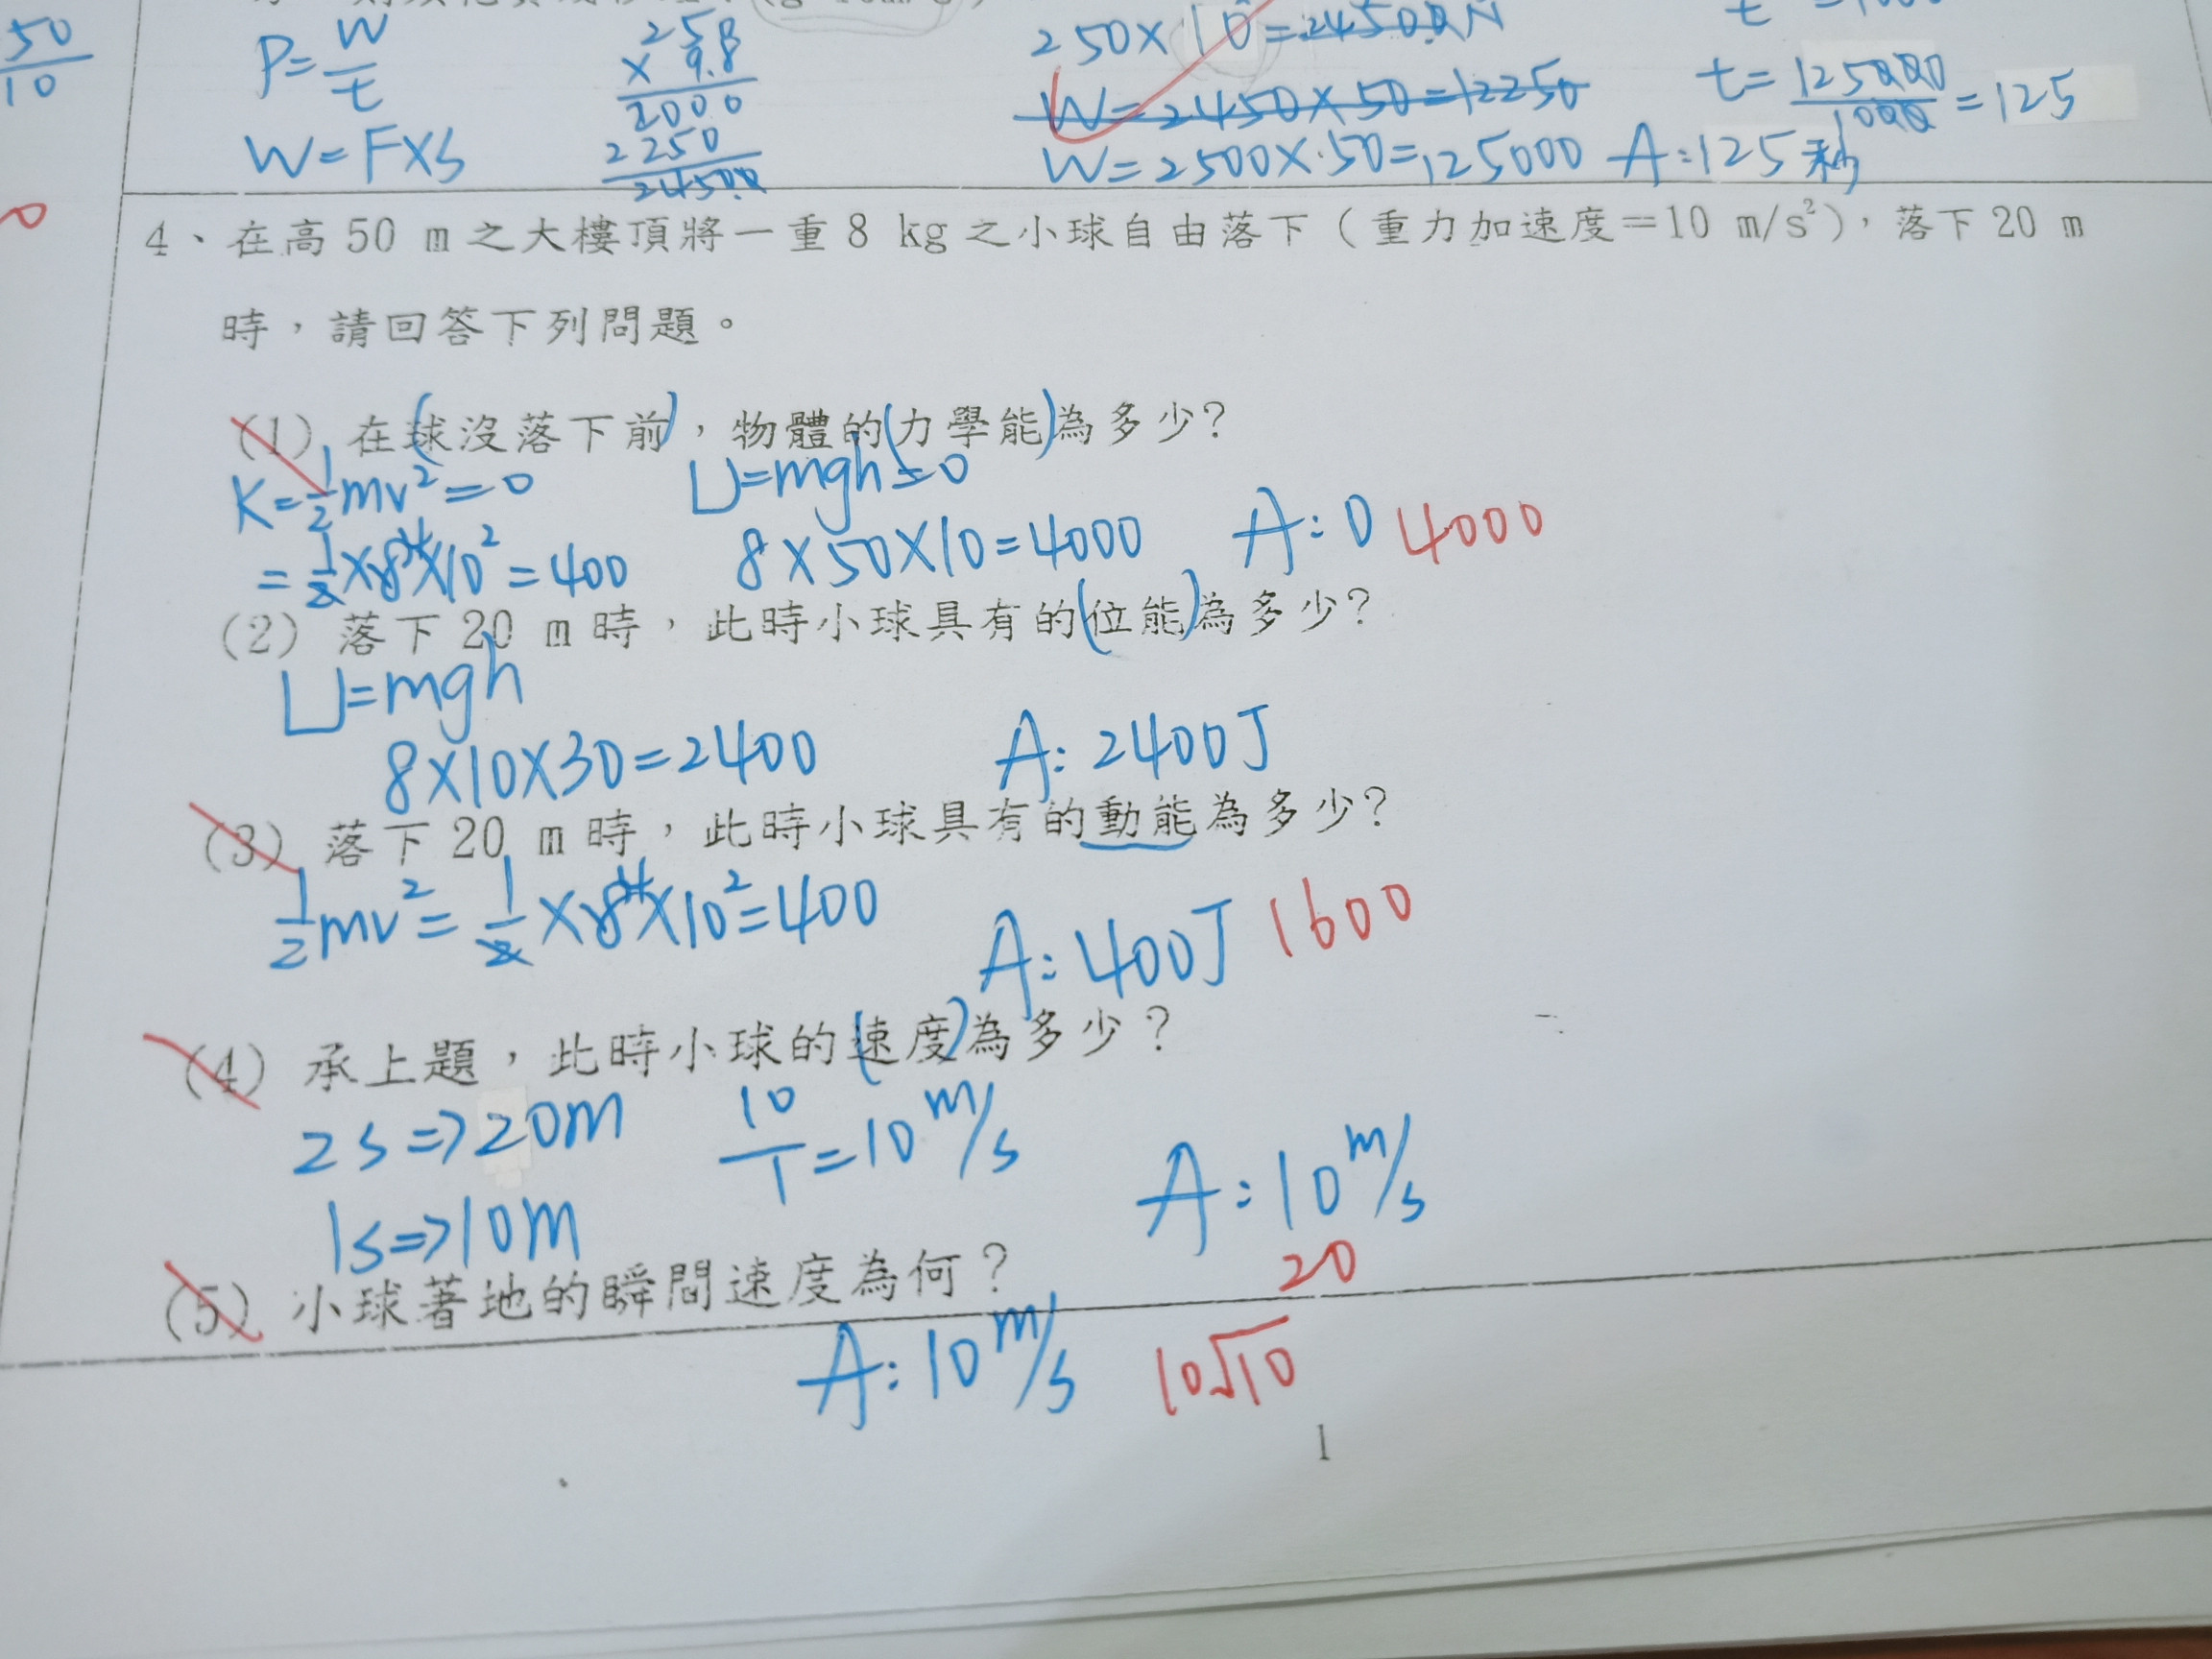 50
10
P=W/t
250
× 9.8
2000
2250
250×10=
W=2450×50=12250
W=F×S
W=2500×50=125000 A:125秒
t=125000/1000=125
4、在高 50 m 之大樓頂將一重 8 kg 之小球自由落下（重力加速度＝10 m/s²），落下 20 m
時，請回答下列問題。
(1) 在(球沒落下前)，物體的(力學能)為多少？
K=1/2mv²=0 U=mgh=0
=1/2×8×10²=400 8×50×10=4000 A:0 4000
(2) 落下 20 m 時，此時小球具有的(位能)為多少？
U=mgh
8×10×30=2400 A:2400J
(3) 落下 20 m 時，此時小球具有的動能為多少？
1/2mv²=1/2×8×10²=400 A:400J 1600
(4) 承上題，此時小球的(速度)為多少？
2s=>20m 10/1=10m/s
1s=>10m A:10m/s
20
(5) 小球著地的瞬間速度為何？
A:10m/s 10√10
1